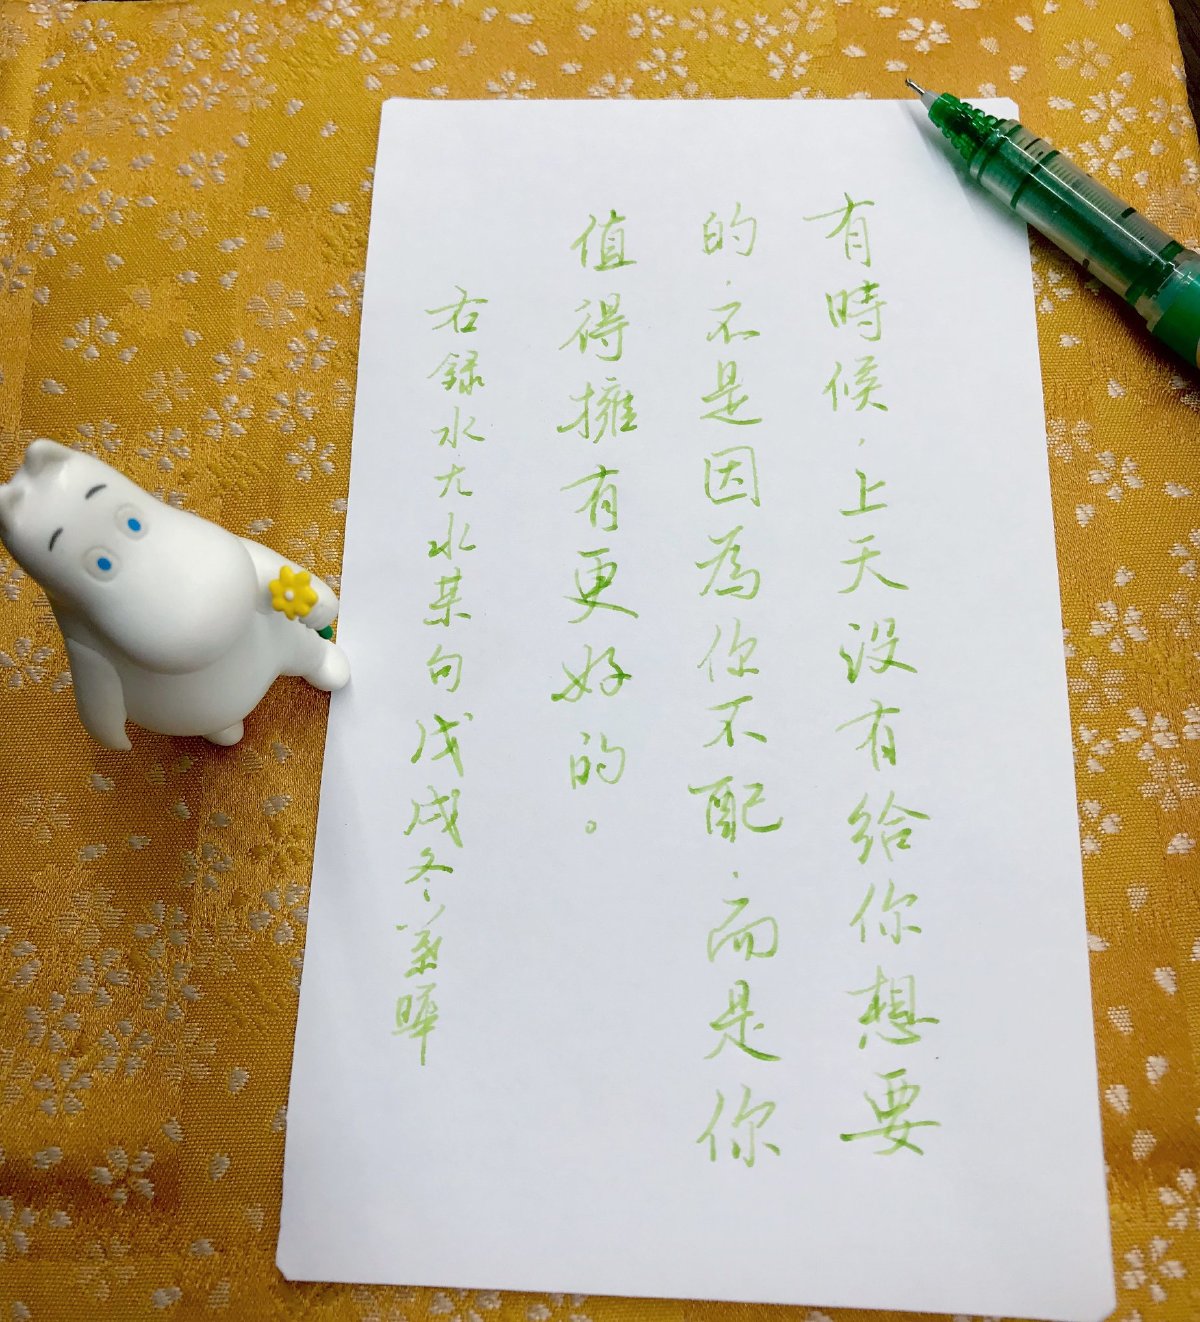 有時候，上天沒有給你想要
的，不是因為你不配，而是你
值得擁有更好的。
右録水尢水某句戊戌冬業曄